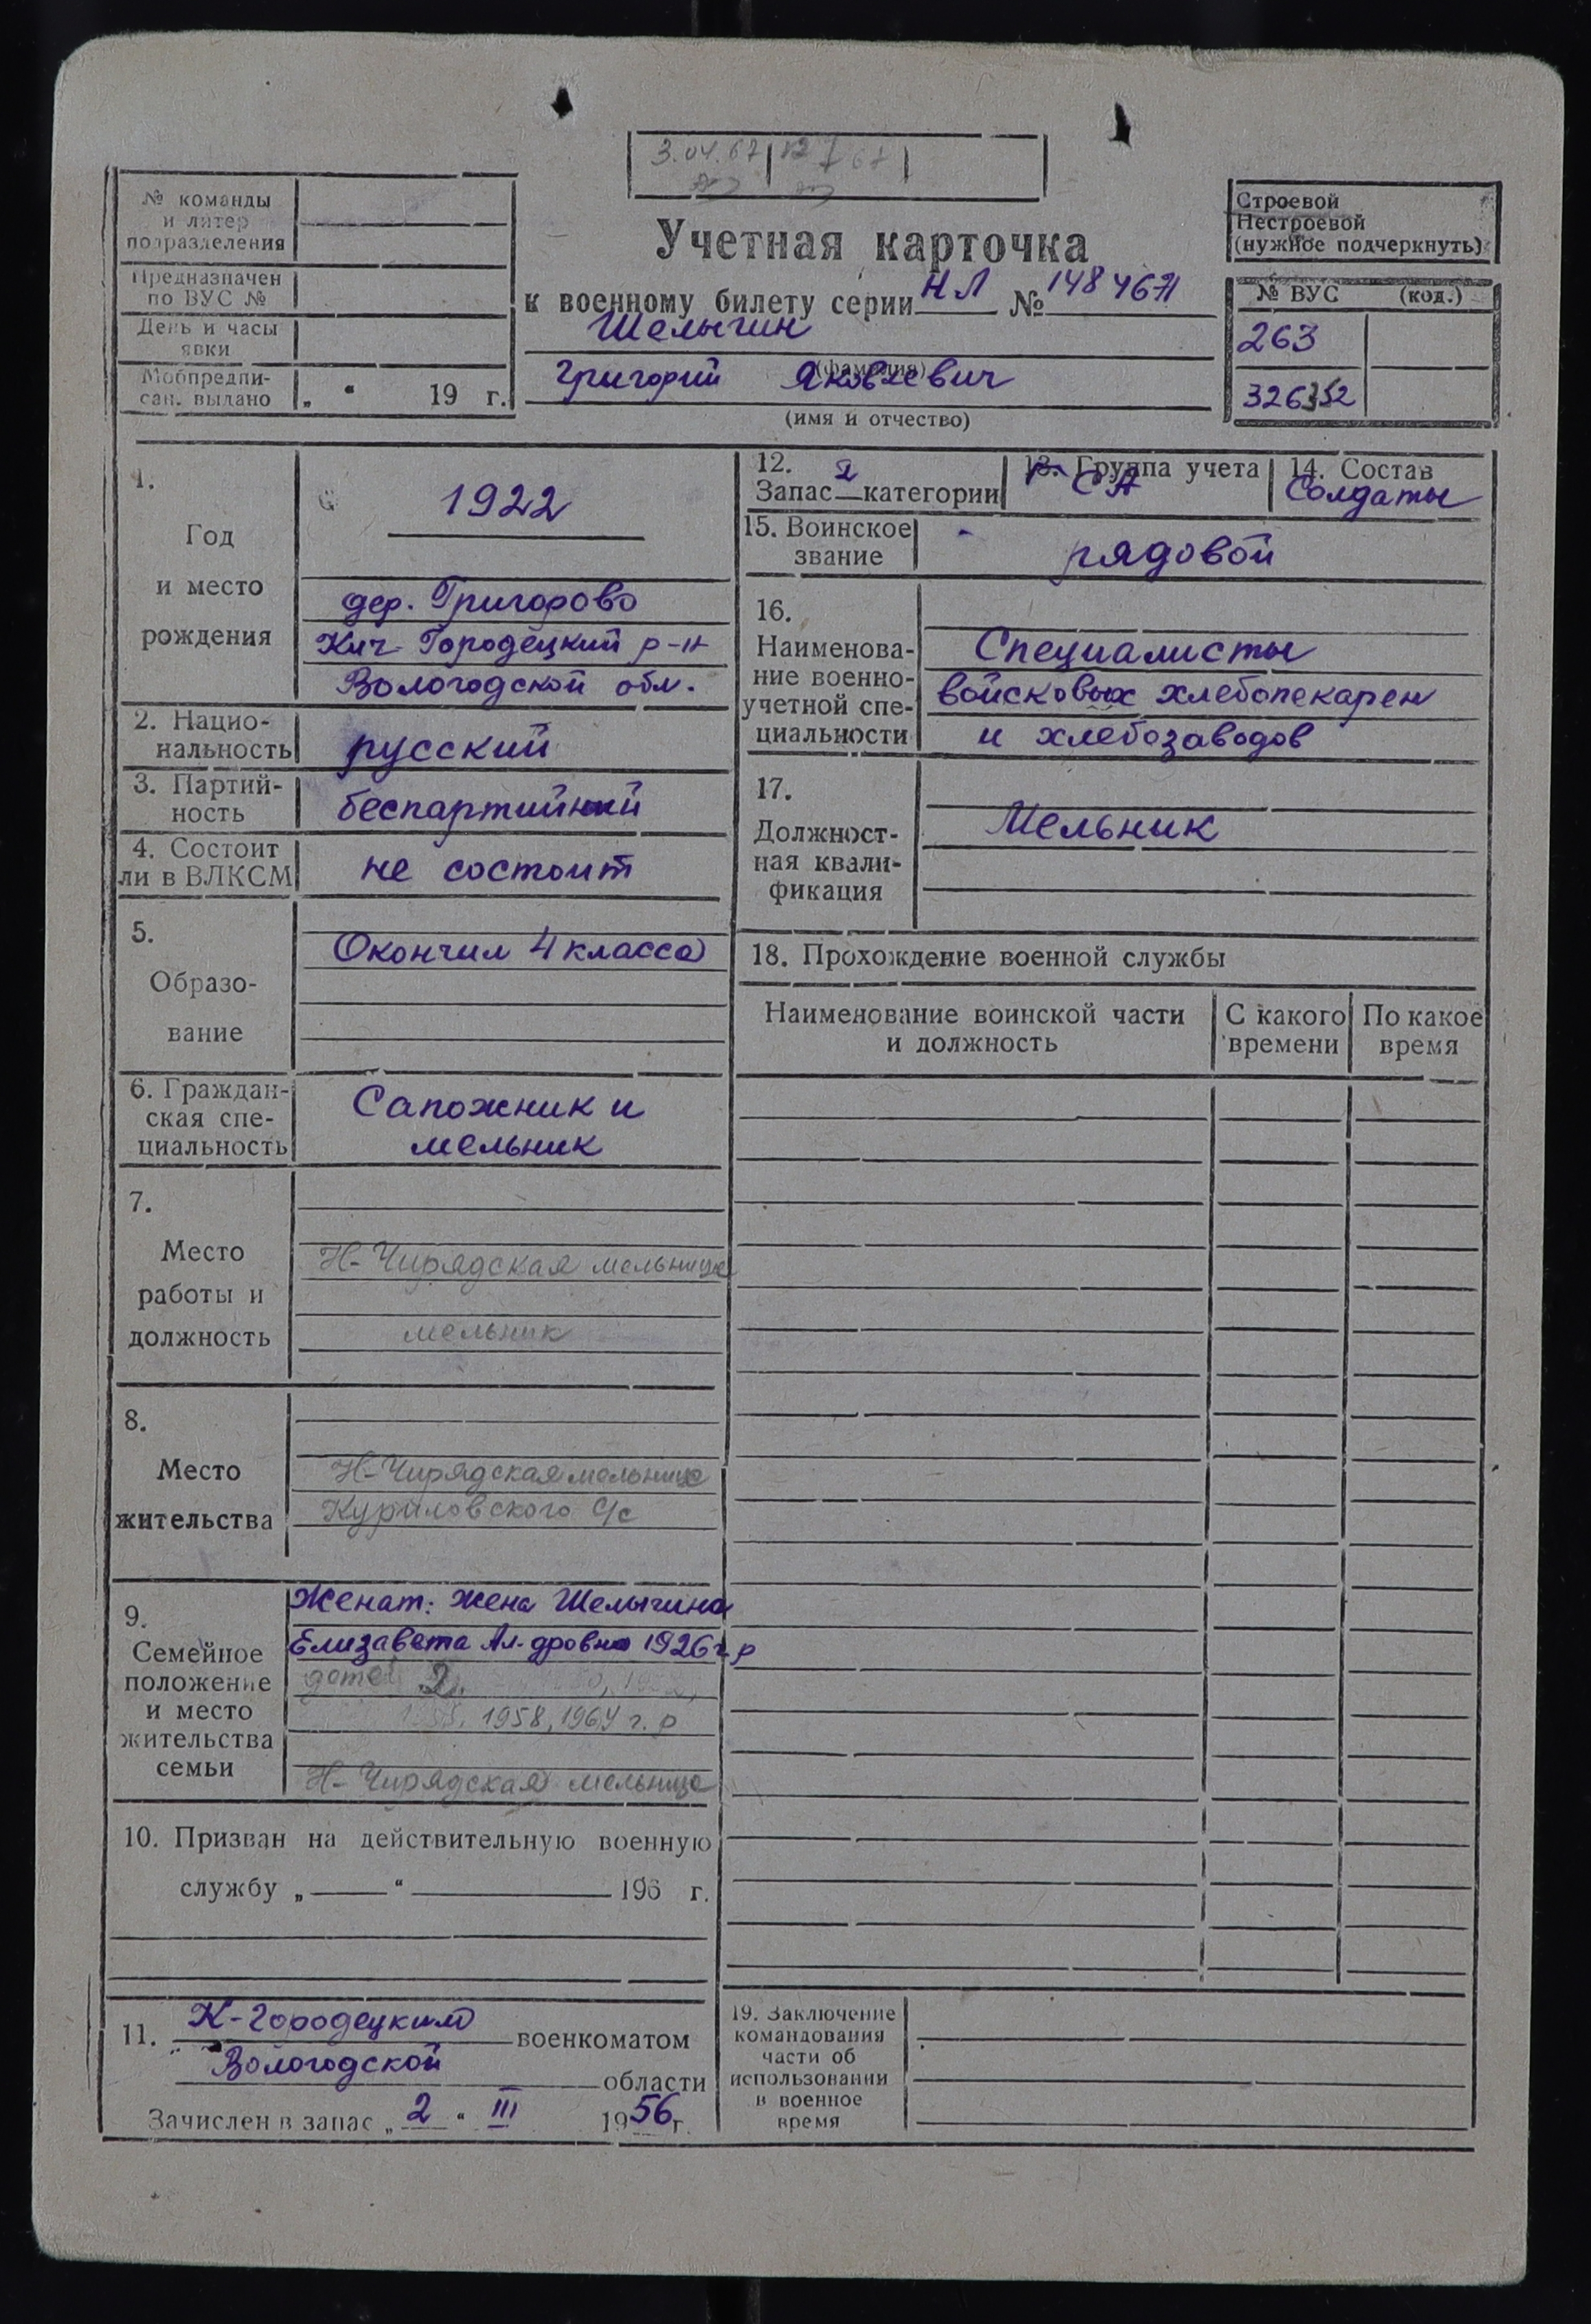 3.04.67
№ команды
и литер
подразделения
Предназначен
по ВУС №
День и часы
явки
Мобпредпи-
сан. выдано „ “ 19 г.
Учетная карточка
к военному билету серии НЛ № 1484671
Шелыгин
(фамилия)
Григорий Яковлевич
(имя и отчество)
Строевой
Нестроевой
(нужное подчеркнуть)
№ ВУС (код.)
263
326352
1.
Год
и место
рождения
1922
дер. Григорово
Кич-Городецкий р-н
Вологодской обл.
2. Нацио-
нальность
русский
3. Партий-
ность
беспартийный
4. Состоит
ли в ВЛКСМ
не состоит
5.
Образо-
вание
Окончил 4 класса
6. Граждан-
ская спе-
циальность
Сапожник и
мельник
7.
Место
работы и
должность
Н-Чирядская мельница
мельник
8.
Место
жительства
Н-Чирядская мельница
Куриловского с/с
9.
Семейное
положение
и место
жительства
семьи
Женат: жена Шелыгина
Елизавета Ал-дровна 1926 г.р
детей 2.
1958, 1964 г. р
Н-Чирядская мельница
10. Призван на действительную военную
службу „ “ 196 г.
11. К-Городецким военкоматом
Вологодской области
Зачислен в запас „ 2 “ III 1956 г.
12.
Запас 2 категории
13. Группа учета
СА
14. Состав
Солдаты
15. Воинское
звание
рядовой
16.
Наименова-
ние военно-
учетной спе-
циальности
Специалисты
войсковых хлебопекарен
и хлебозаводов
17.
Должност-
ная квали-
фикация
Мельник
18. Прохождение военной службы
Наименование воинской части
и должность
С какого
времени
По какое
время
19. Заключение
командования
части об
использовании
в военное
время